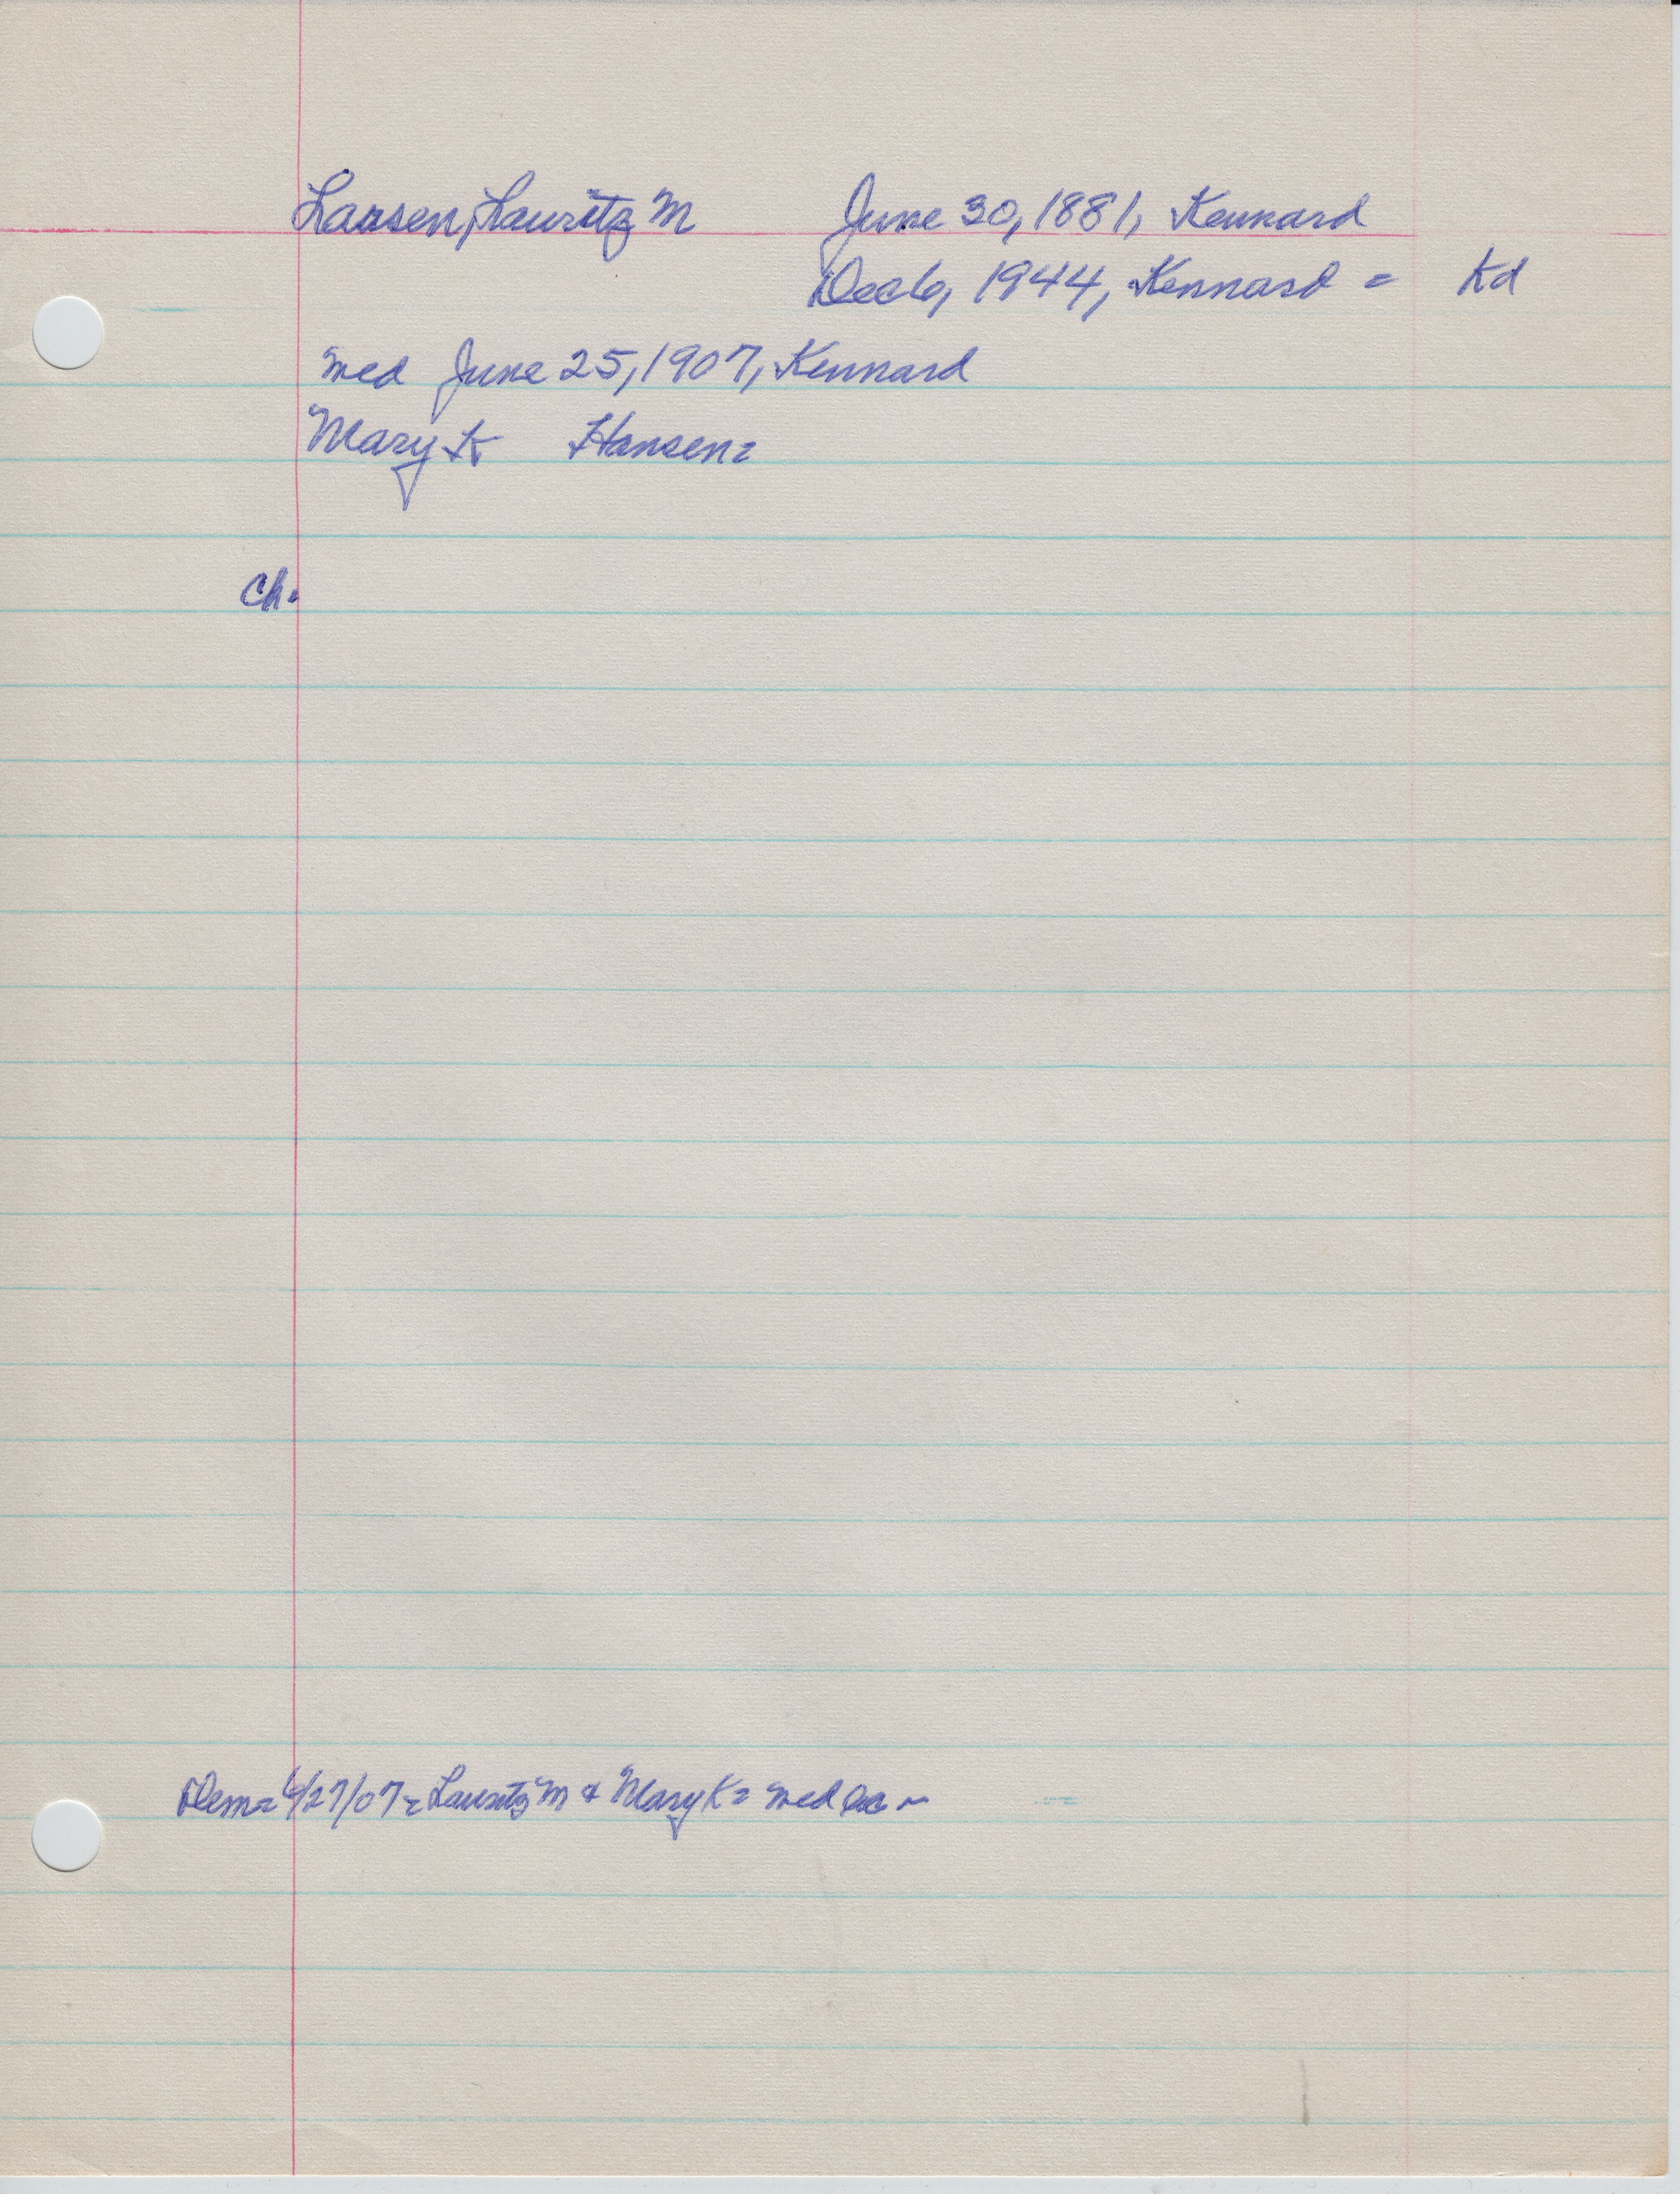 Larsen, Lauritz M June 30, 1881, Kennard
Dec 6, 1944, Kennard = Kd
Med June 25, 1907, Kennard
Mary K Hansen =
Ch.
Dem = 6/27/07 = Lauritz M & Mary K = med